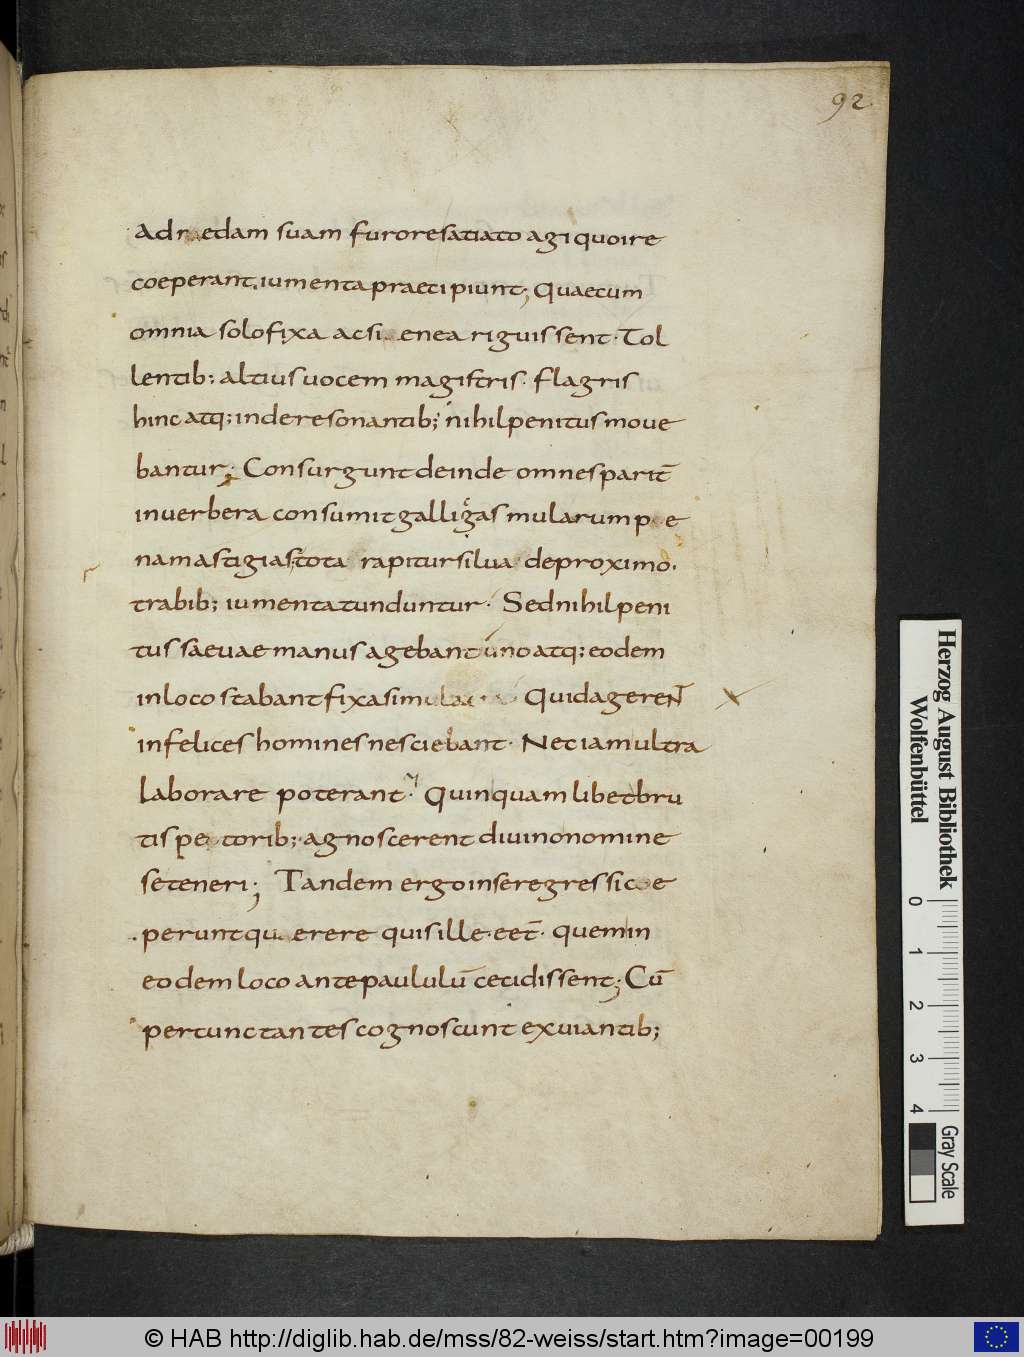 92
Ad raedam suam furore satiato agi quo ire
coeperant. iumenta praecipiunt; Quae cum
omnia solo fixa ac si enea riguissent. Tol
lentib; altius uocem magistris. flagris
hinc atq; inde resonantib; nihil penitus moue
bantur; Consurgunt deinde omnes parit̄
in uerbera consumit galligas mularum p e
na mastigias; tota rapitur silua de proximo.
trabib; iumenta tunduntur. Sed nihil peni
tus saeuae manus agebant uno atq; eodem
in loco stabant fixa simulac Quid agereNT̄
infelices homines nesciebant. Nec iam ultra
laborare poterant. Quin quamlibet bru
tis pectorib; agnoscerent diuino nomine
se teneri; Tandem ergo in se regressi coe
perunt quaerere quis ille eet̄. quem in
eodem loco ante paululū cecidissent; Cū
percunctantes cognoscunt ex uiantib;
Herzog August Bibliothek
Wolfenbüttel
0 1 2 3 4
Gray Scale
© HAB http://diglib.hab.de/mss/82-weiss/start.htm?image=00199